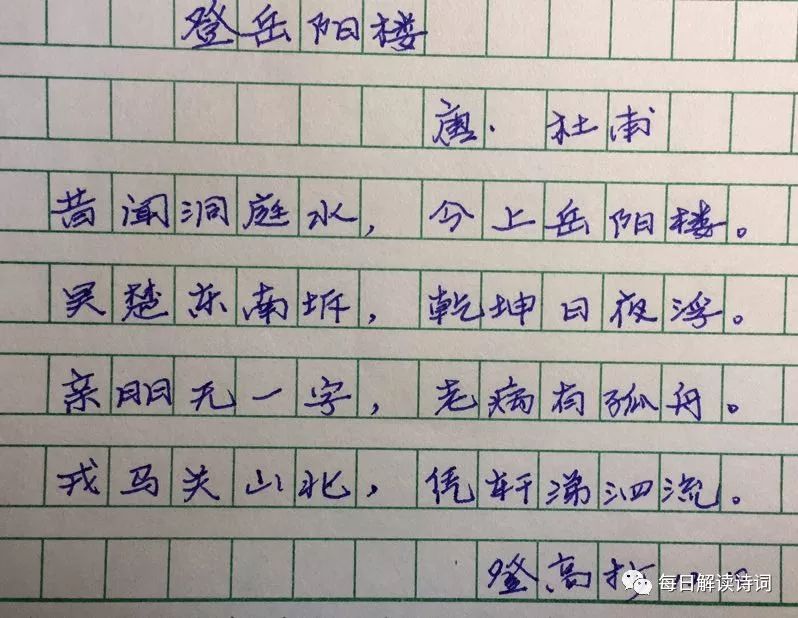 登岳阳楼
唐·杜甫
昔闻洞庭水，今上岳阳楼。
吴楚东南坼，乾坤日夜浮。
亲朋无一字，老病有孤舟。
戎马关山北，凭轩涕泗流。
登高
每日解读诗词